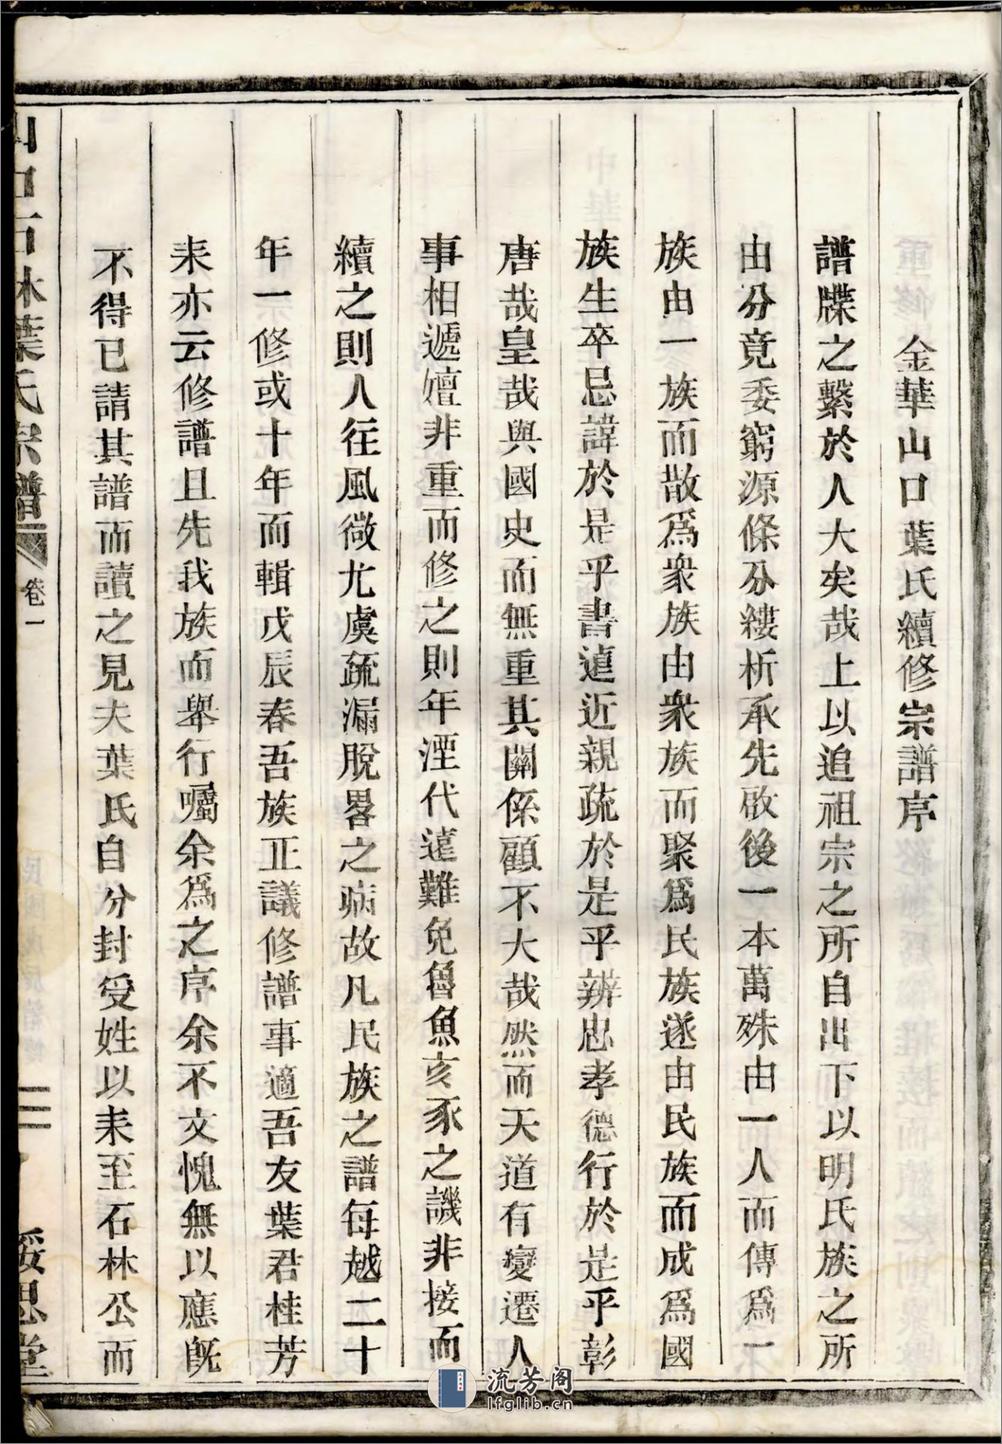 金華山口葉氏續修宗譜序
譜牒之繫於人大矣哉上以追祖宗之所自出下以明氏族之所
由分竟委窮源條分縷析承先啟後一本萬殊由一人而傳爲一
族由一族而散爲衆族由衆族而聚爲民族遂由民族而成爲國
族生卒忌諱於是乎書遠近親疏於是乎辨忠孝德行於是乎彰
唐哉皇哉與國史而無重其關係顧不大哉然而天道有變遷人
事相遞嬗非重而修之則年湮代遠難免魯魚亥豕之譏非接而
續之則人往風微尤虞疏漏脫畧之病故凡民族之譜每越二十
年一修或十年而輯戊辰春吾族正議修譜事適吾友葉君桂芳
耒亦云修譜且先我族而舉行囑余爲之序余不文愧無以應旣
不得已請其譜而讀之見夫葉氏自分封受姓以耒至石林公而
山口石林葉氏宗譜
卷一
三
綏思堂
流芳阁
lfglib.cn